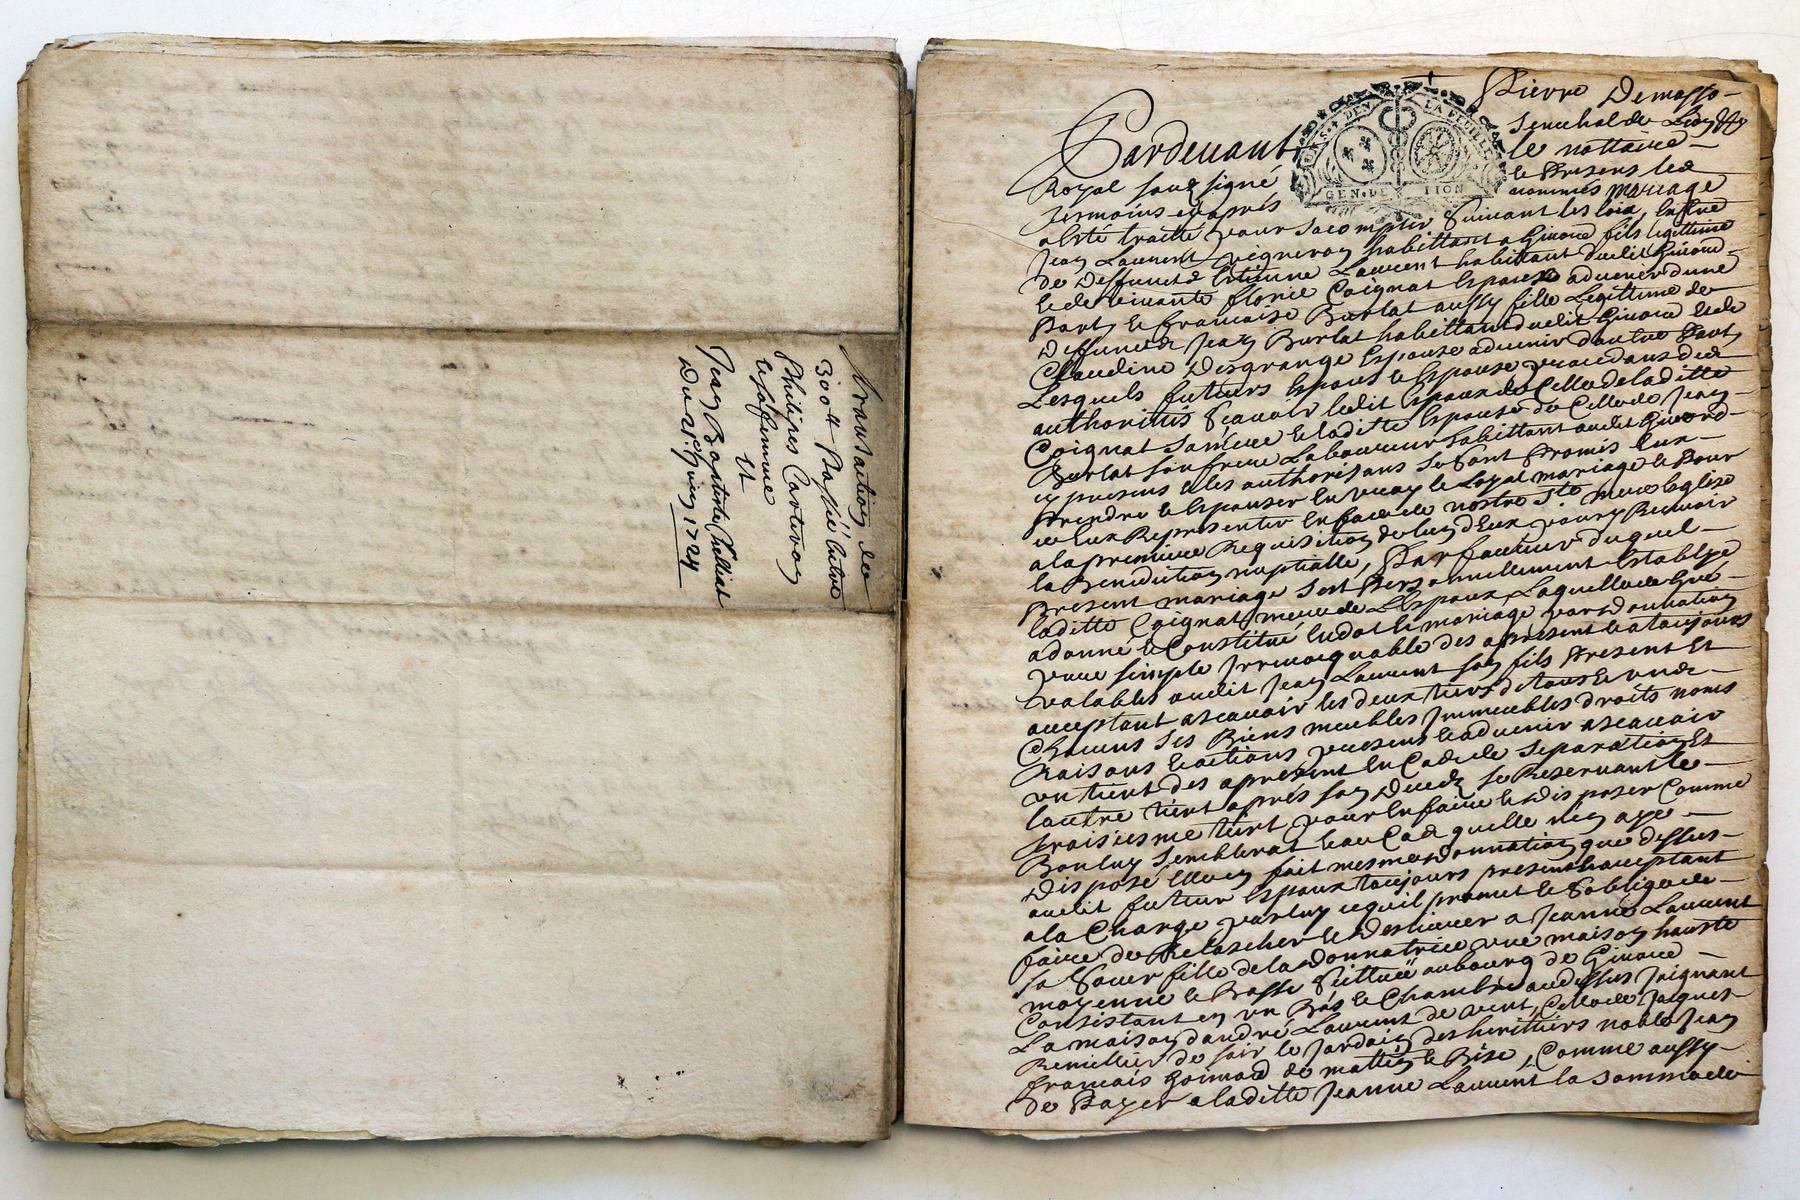 Transaction de
300 ₶ Passée Entre
Philipes Carteron
Et sa femme
Et
Jean Baptiste
Du 21e Juin 1724
Pierre Demasso
Senechal de Lion
Pardevant le nottaire
Royal soubsigné Et Presens les
Tesmoins cy aprés nommés mariage
a Esté traitté pour Sacomplir Suivant les loix, Entre
Jean Laurent vigneron habittant a Givord fils legittime
de Deffunct Estienne Laurent habittant dudit Givord
Et de vivante florie Coignat Espoux advenir dune
Part, Et francoise Burlat aussy fille Legittime de
Deffunct Jean Burlat habittant dudit Givord Et de
Claudine Desgrange Espouse advenir dautre Part,
Lesquels futurs Espoux Et Espouse procedans de
authorités Scavoir ledit Espoux de Celle de laditte
Coignat Sa mere Et laditte Espouse de Celle de Jean
Burlat son frere Laboureur habittant audit Givord
cy presens Et les authorisans Se sont Promis Eux
Prendre Et Espouser En vray Et Loyal mariage Et Pour
ce Eux Representer En face de nostre Ste mere Eglise
a la premiere Requisition de lun dEux pour y Recevoir
la Benediction nuptialle, En faveur duquel
Present mariage Sest Personnellement Establye
laditte Coignat mere de LEspoux Laquelle de Gré
a donné Et Constitué En dot Et mariage par donnation
pure simple Irrevocquable des apresent Et a tousjours
valable audit Jean Laurent son fils Present Et
acceptant ascavoir les deux tiers de tous Et un
Chacuns Ses Biens meubles Immeubles droits noms
Raisons Et actions presens Et advenir ascavoir
un tiert des apresent En Cas de Separation Et
lautre tiert aprés son decedz Se Reservant le
troisiesme tiert pour En faire Et Disposer Comme
Bon luy Semblerat Et au Cas quelle nen aye
Disposé Elle En fait mesme donnation que dessus
audit futur Espoux tousjours present Et acceptant
a la Charge par luy ce quil promet Et Soblige de
faire de Relascher Et Deslivrer a Jeanne Laurent
Sa Soeur fille de la donnatrice une maison haute
moyenne Et Basse Scittuée au bourg de Givord
Consistant En un Bas Et Chambre au dessus Joignant
La maison dandré Laurent de vent, Celle de Jacques
Remillier de soir le Jardin des herittiers noble Jean
francois Goinard de mattin Et Bise, Comme aussy
de Payer a laditte Jeanne Laurent la Somme de